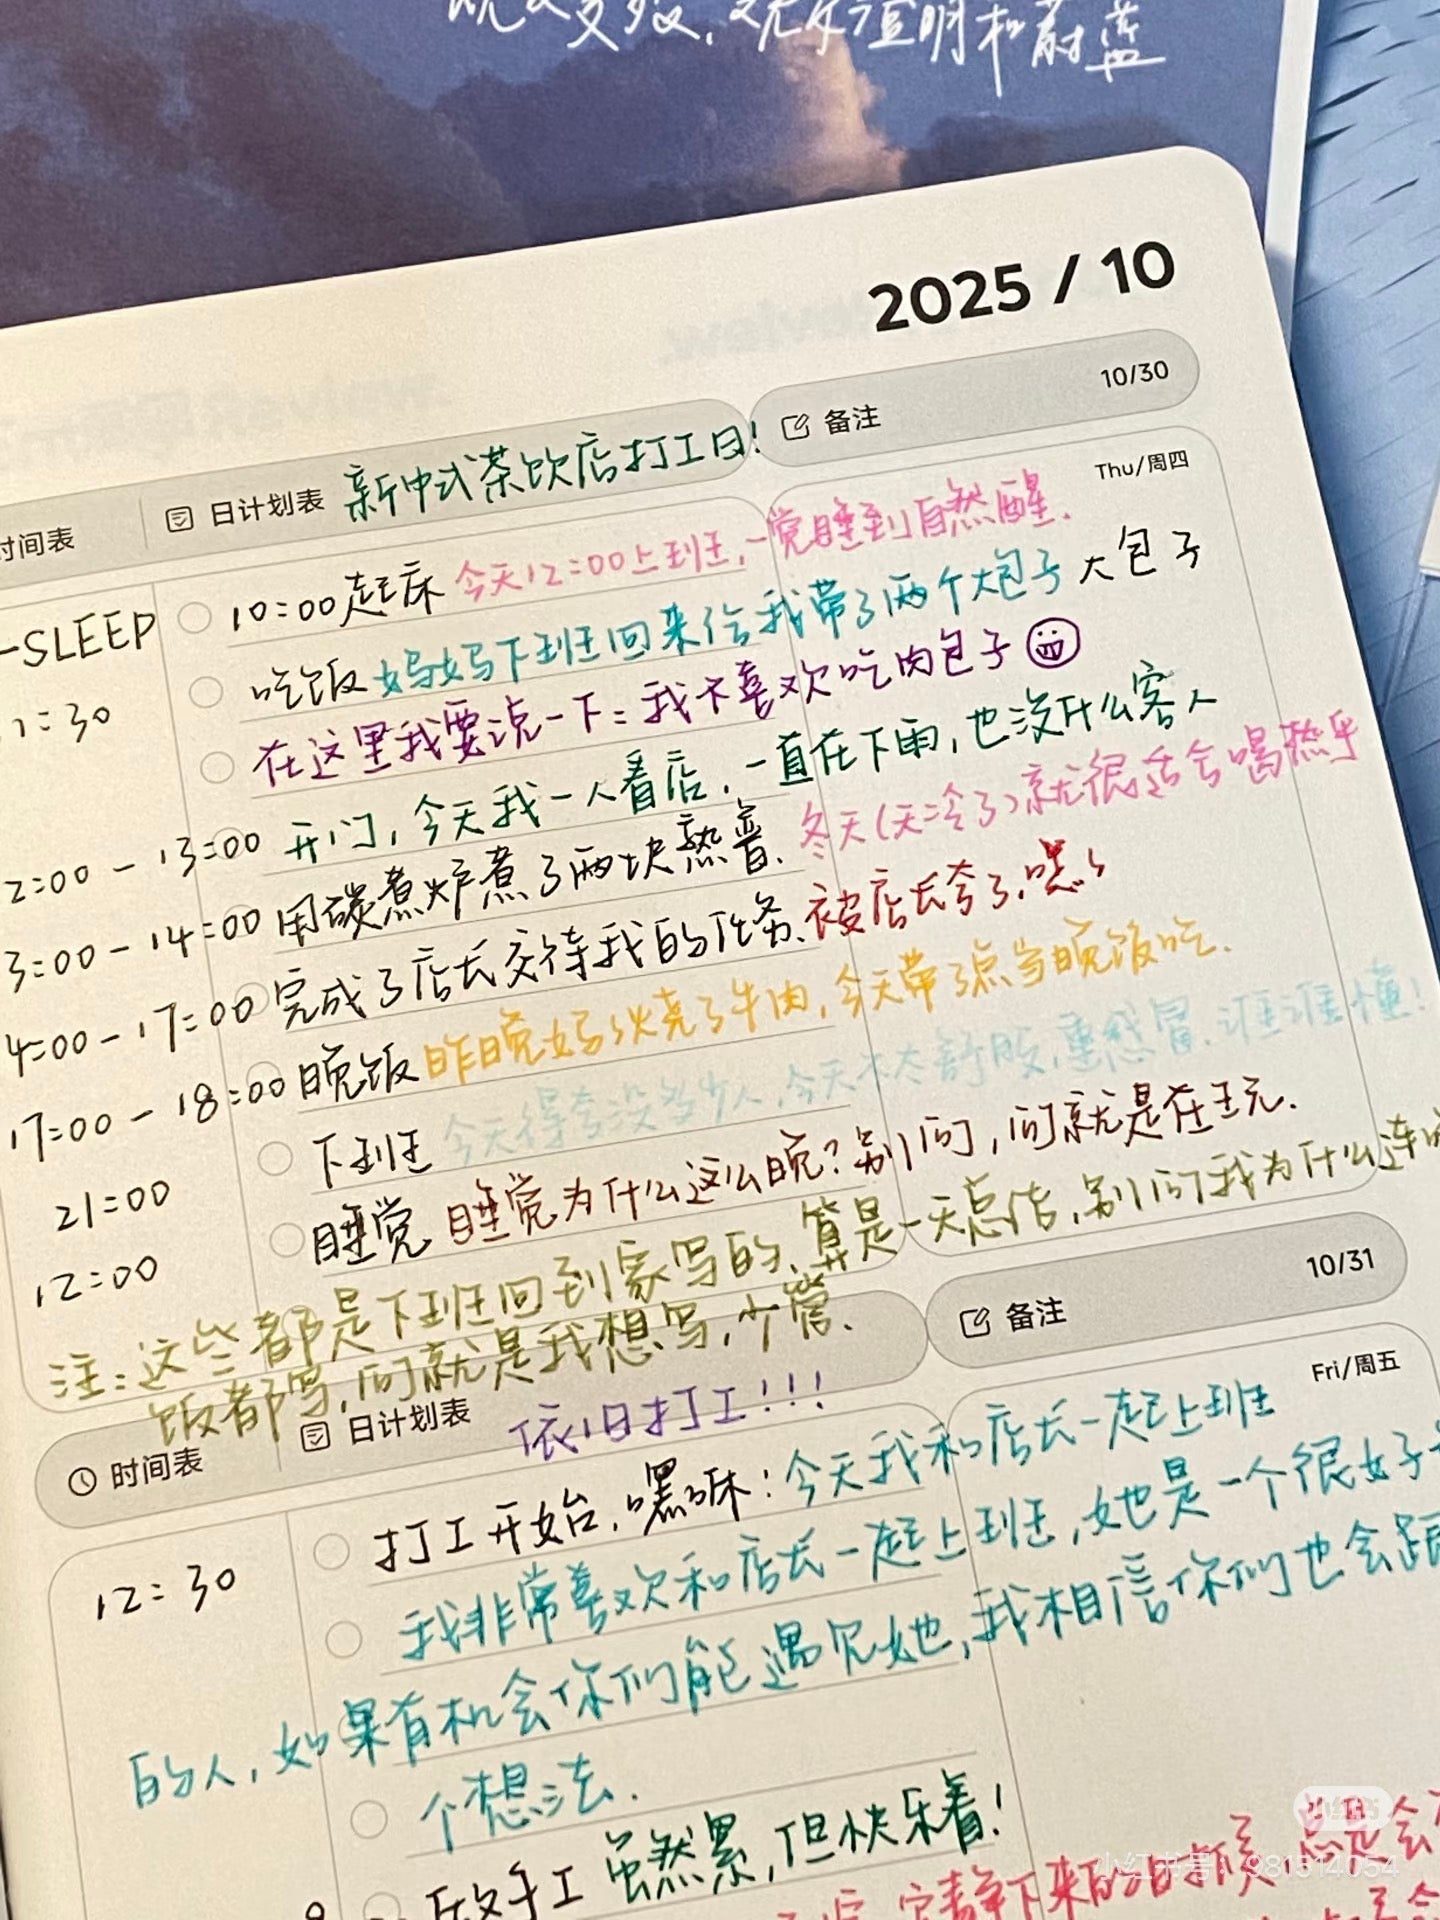 澄明和蔚蓝
2025 / 10
备注 10/30
时间表 日计划表 新中式茶饮店打工日!
Thu/周四
-SLEEP 10:00起床 今天12:00上班,一觉睡到自然醒.
吃饭 妈妈下班回来给我带了两个大包子 大包子
1:30 在这里我要说一下:我不喜欢吃肉包子
2:00 - 13:00 开门,今天我一人看店,一直在下雨,也没什么客人
3:00 - 14:00 用碳煮炉煮了两块熟普. 冬天(天冷了)就很适合喝热乎
4:00 - 17:00 完成了店长交待我的任务. 被店长夸了,嘿
17:00 - 18:00 晚饭 昨晚妈妈烧了牛肉,今天带了点当晚饭吃.
21:00 下班 今天得亏没多少人,今天不太舒服,重感冒,谁谁懂!
12:00 睡觉 睡觉为什么这么晚?别问,问就是在玩.
注:这些都是下班回到家写的、算是一天总结,别问我为什么连吃
饭都写,问就是我想写,少管.
备注 10/31
时间表 日计划表 依旧打工!!!
Fri/周五
12:30 打工开始,嘿嘛:今天我和店长一起上班
我非常喜欢和店长一起上班,她是一个很好
的人,如果有机会你们能遇见她,我相信你们也会跟
个想法.
做手工 虽然累,但快乐着!
安静下来的时候,总是会
小红书
小红书号:981514054